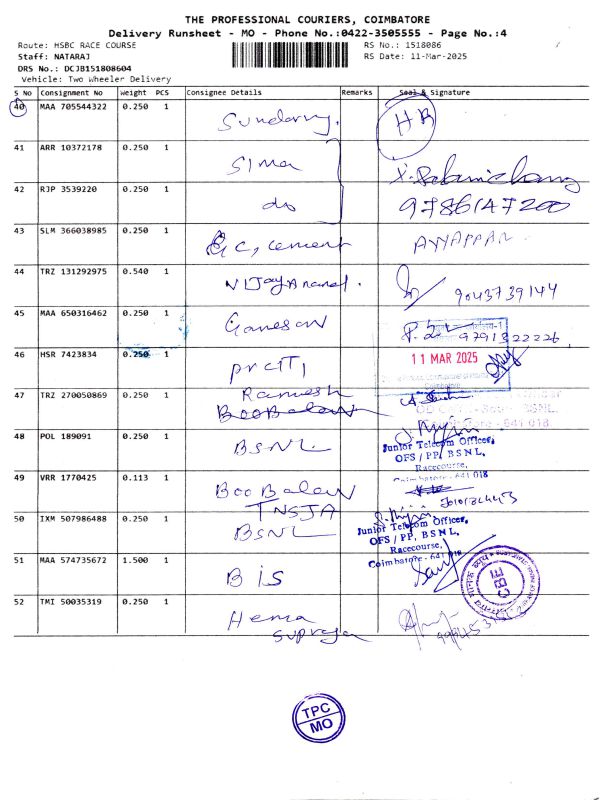 THE PROFESSIONAL COURIERS, COIMBATORE
Delivery Runsheet - MO - Phone No.:0422-3505555 - Page No.:4
Route: HSBC RACE COURSE
RS No.: 1518086
Staff: NATARAJ
RS Date: 11-Mar-2025
DRS No.: DCJB151808604
Vehicle: Two Wheeler Delivery
S No Consignment No Weight PCS Consignee Details Remarks Seal & Signature
40 MAA 705544322 0.250 1 HR
41 ARR 10372178 0.250 1 Sima
42 RJP 3539220 0.250 1 do 9786147200
43 SLM 366038985 0.250 1 cement AYYAPPAN
44 TRZ 131292975 0.540 1 VIJay Anand. 9043739144
45 MAA 650316462 0.250 1 Ganesan 9791322226
46 HSR 7423834 0.250 1 11 MAR 2025
Coimbatore
47 TRZ 270050869 0.250 1 Ramesh
BooBalan
BSNL,
641 018
48 POL 189091 0.250 1 BSNL
Junior Telecom Officer,
OFS / PP, BSNL,
Racecourse,
Coimbatore - 641 018
49 VRR 1770425 0.113 1 BooBalan
TNSJA
50 IXM 507986488 0.250 1 BSNL
Junior Telecom Officer,
OFS / PP, BSNL,
Racecourse,
Coimbatore - 641 018
51 MAA 574735672 1.500 1 BIS
52 TMI 50035319 0.250 1 Hema
Supraja
TPC
MO